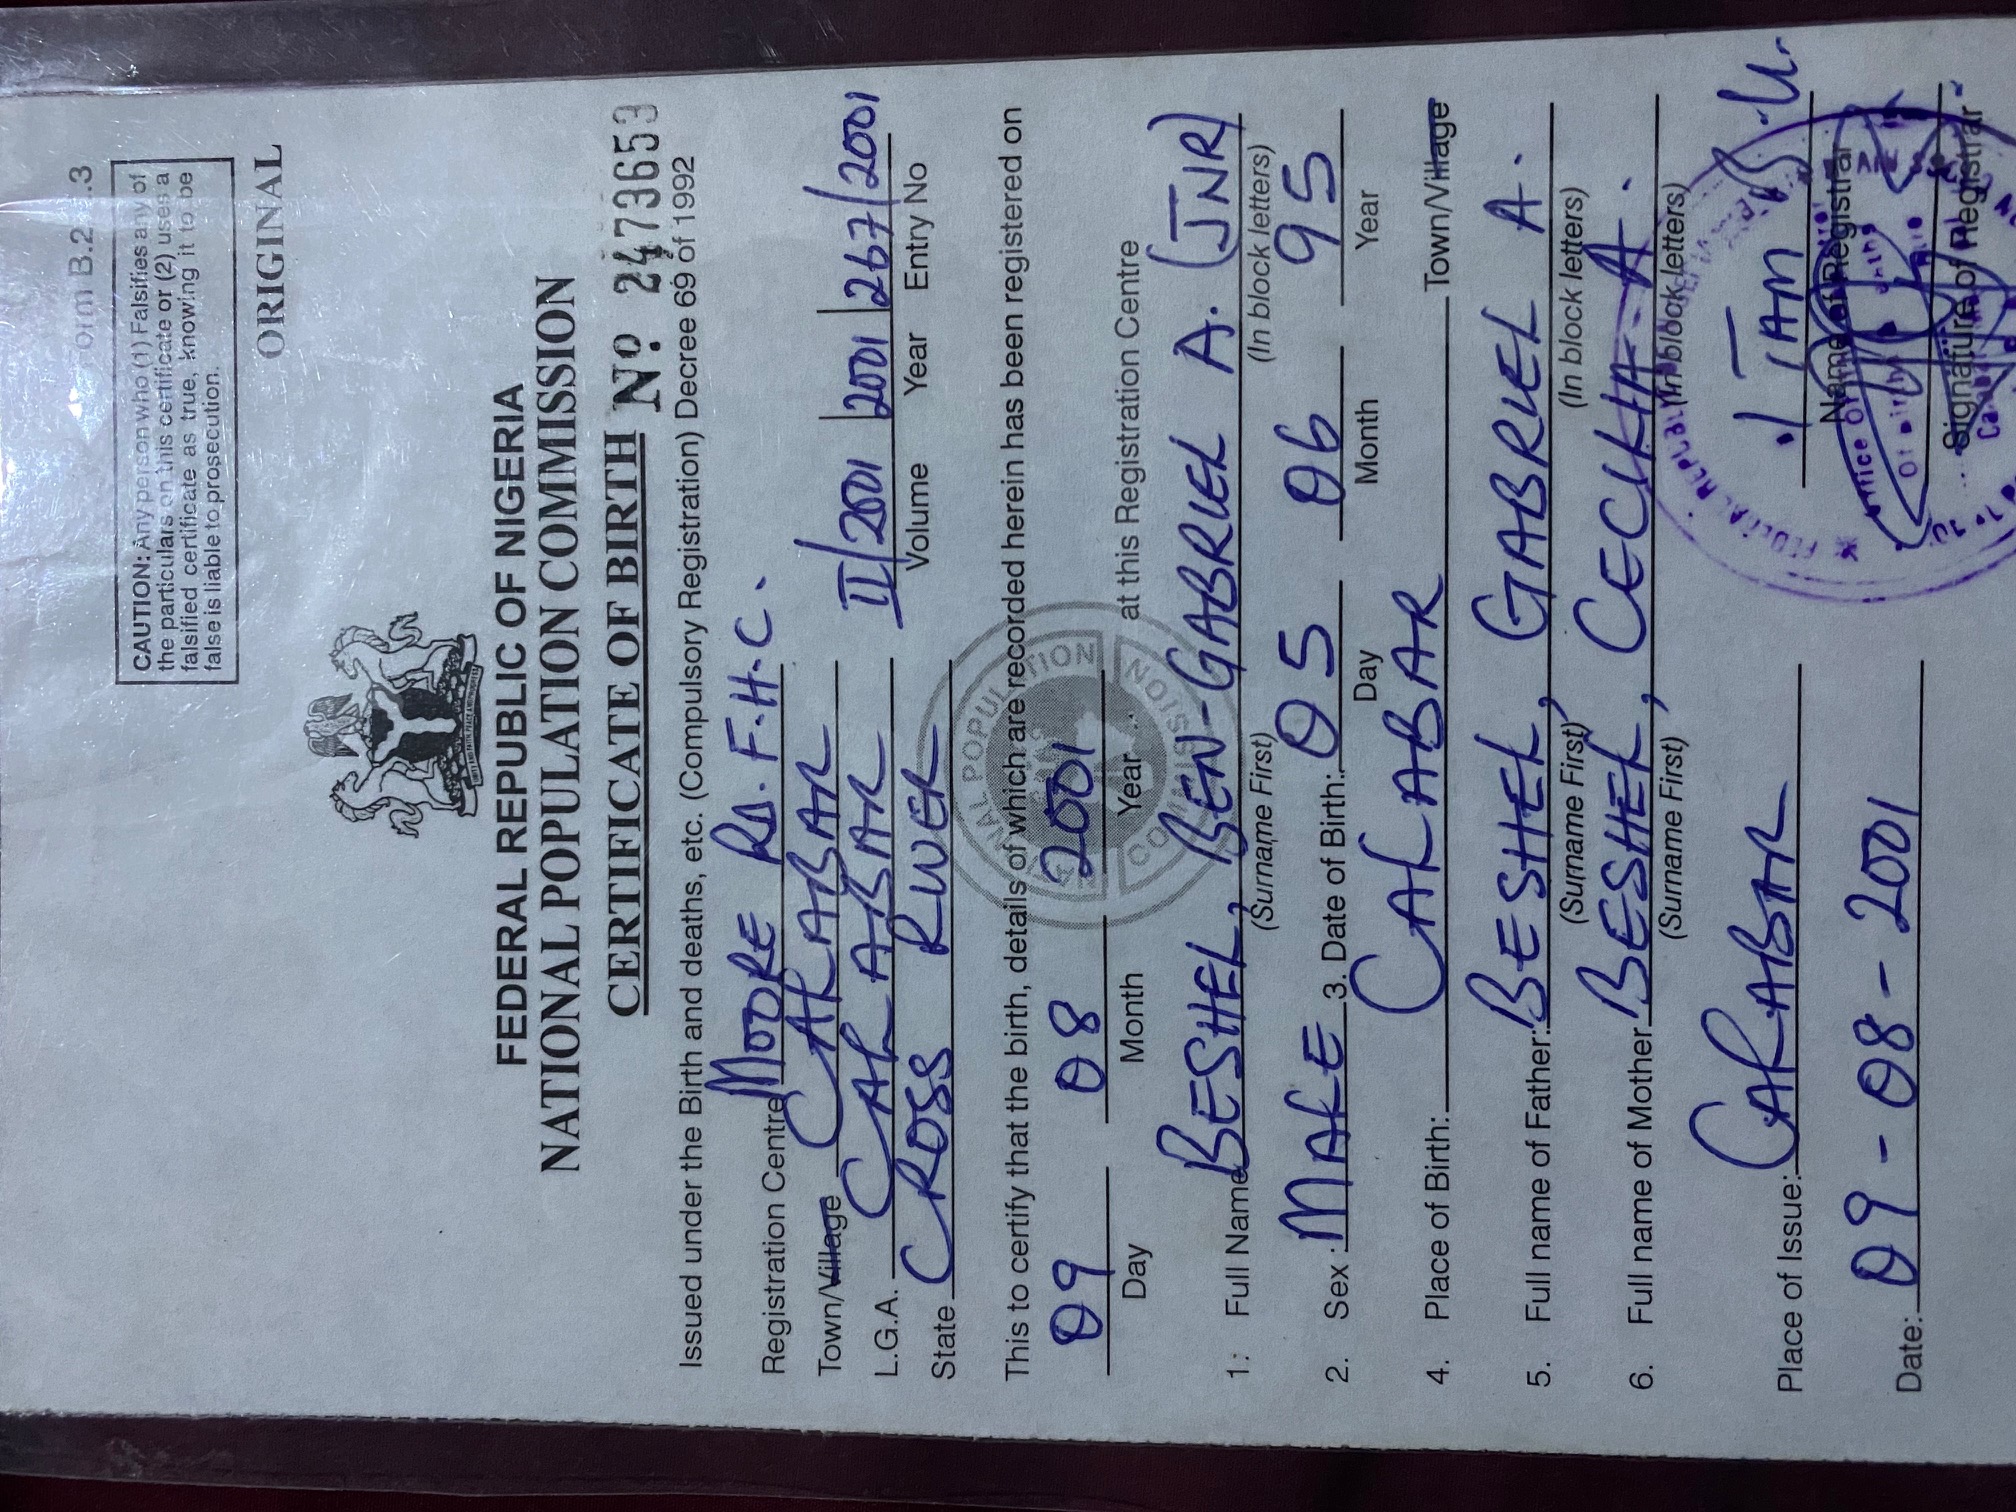 orm B.2 .3
CAUTION: Any person who (1) Falsifies any of
the particulars on this certificate or (2) uses a
falsified certificate as true, knowing it to be
false is liable to prosecution.
ORIGINAL
UNITY AND FAITH, PEACE AND PROGRESS
FEDERAL REPUBLIC OF NIGERIA
NATIONAL POPULATION COMMISSION
CERTIFICATE OF BIRTH Nº 2473653
Issued under the Birth and deaths, etc. (Compulsory Registration) Decree 69 of 1992
Registration Centre MOORE RD. F.H.C.
Town/Village CALABAR
L.G.A. CALABAR II/2001 2001 267/2001
Volume Year Entry No
State CROSS RIVER
NATIONAL POPULATION COMMISSION
This to certify that the birth, details of which are recorded herein has been registered on
09 08 2001
Day Month Year at this Registration Centre
1. Full Name BESHEL, BEN-GABRIEL A. (JNR)
(Surname First) (In block letters)
2. Sex: MALE 3. Date of Birth: 05 06 95
Day Month Year
4. Place of Birth: CALABAR Town/Village
5. Full name of Father: BESHEL, GABRIEL A.
(Surname First) (In block letters)
6. Full name of Mother BESHEL, CECILIA A.
(Surname First) (In block letters)
Place of Issue: CALABAR ITAM B.U.
Name of Registrar
Date: 09-08-2001
Signature of Registrar
FEDERAL REPUBLIC OF
Office Of
Of Births